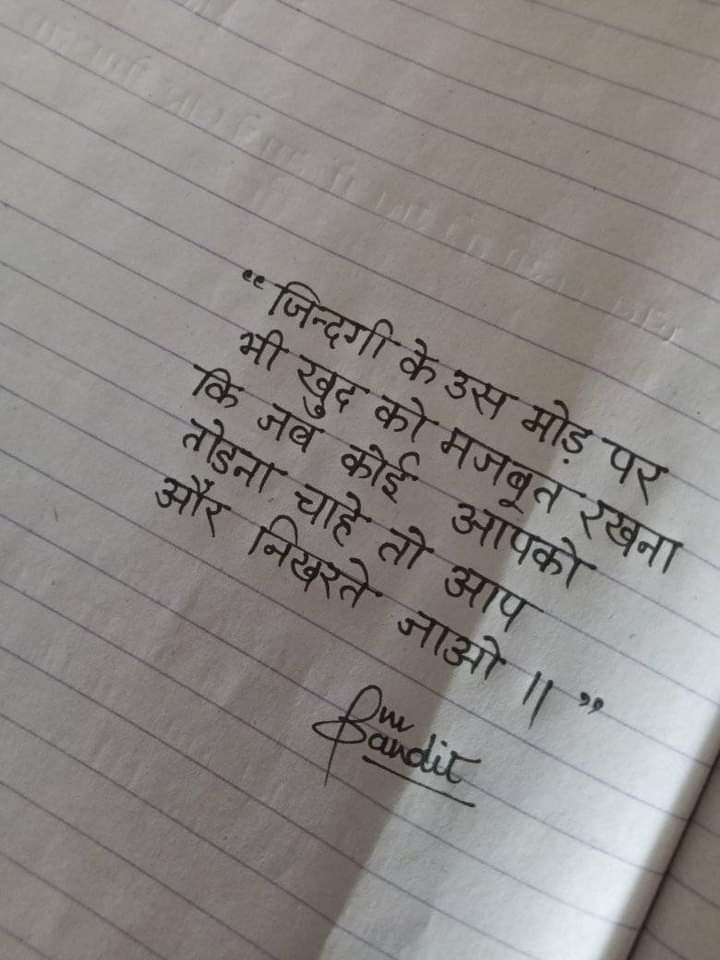 “ जिन्दगी के उस मोड़ पर
भी खुद को मजबूत रखना
कि जब कोई आपको
तोडना चाहे तो आप
और निखरते जाओ ॥ ”